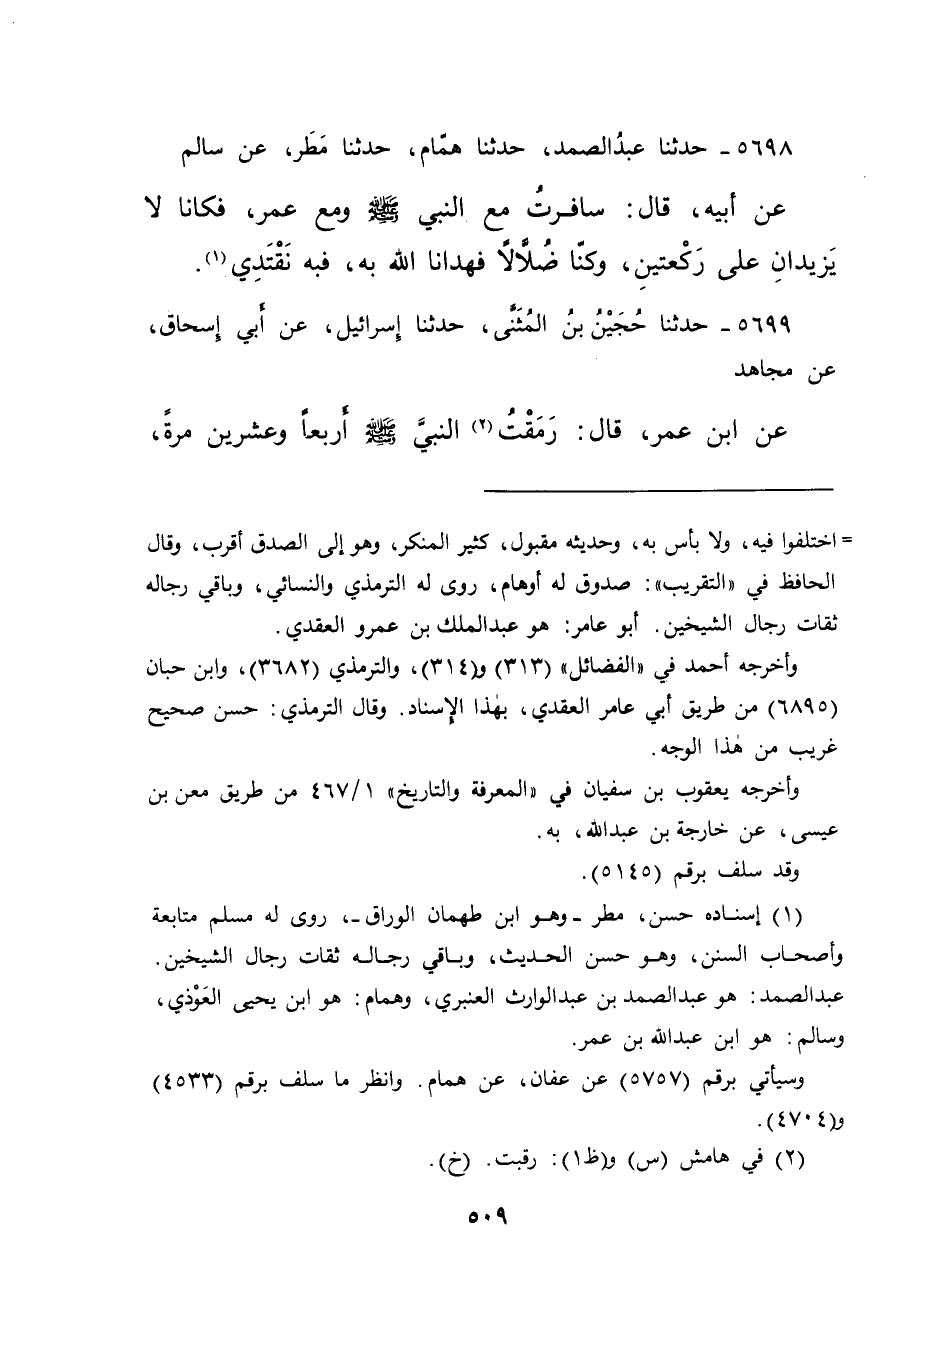 ٥٦٩٨ ـ حدثنا عبدُالصمد، حدثنا همّام، حدثنا مَطَر، عن سالم
عن أبيه، قال: سافـرتُ مع النبي ﷺ ومع عمر، فكانا لا
يَزيدانِ على رَكْعتينِ، وكنّا ضُلَّالاً فهدانا الله به، فبه نَقْتَدِي(١).
٥٦٩٩ ـ حدثنا حُجَيْنُ بنُ المُثَنَّى، حدثنا إسرائيل، عن أَبي إسحاق،
عن مجاهد
عن ابن عمر، قال: رَمَقْتُ(٢) النبيَّ ﷺ أَربعاً وعشرين مرةً،
= اختلفوا فيه، ولا بأس به، وحديثه مقبول، كثير المنكر، وهو إلى الصدق أقرب، وقال
الحافظ في «التقريب»: صدوق له أوهام، روى له الترمذي والنسائي، وباقي رجاله
ثقات رجال الشيخين. أبو عامر: هو عبدالملك بن عمرو العقدي.
وأخرجه أحمد في «الفضائل» (٣١٣) و(٣١٤)، والترمذي (٣٦٨٢)، وابن حبان
(٦٨٩٥) من طريق أبي عامر العقدي، بهٰذا الإسناد. وقال الترمذي: حسن صحيح
غريب من هٰذا الوجه.
وأخرجه يعقوب بن سفيان في «المعرفة والتاريخ» ٤٦٧/١ من طريق معن بن
عيسى، عن خارجة بن عبدالله، به.
وقد سلف برقم (٥١٤٥).
(١) إسنـاده حسن، مطر ـ وهـو ابن طهمان الوراق ـ، روى له مسلم متابعة
وأصحـاب السنن، وهـو حسن الحـديث، وبـاقي رجـالـه ثقات رجال الشيخين.
عبدالصمد: هو عبدالصمد بن عبدالوارث العنبري، وهمام: هو ابن يحيى العَوْذي،
وسالم: هو ابن عبدالله بن عمر.
وسيأتي برقم (٥٧٥٧) عن عفان، عن همام. وانظر ما سلف برقم (٤٥٣٣)
و(٤٧٠٤).
(٢) في هامش (س) و(ظ١): رقبت. (خ).
٥٠٩